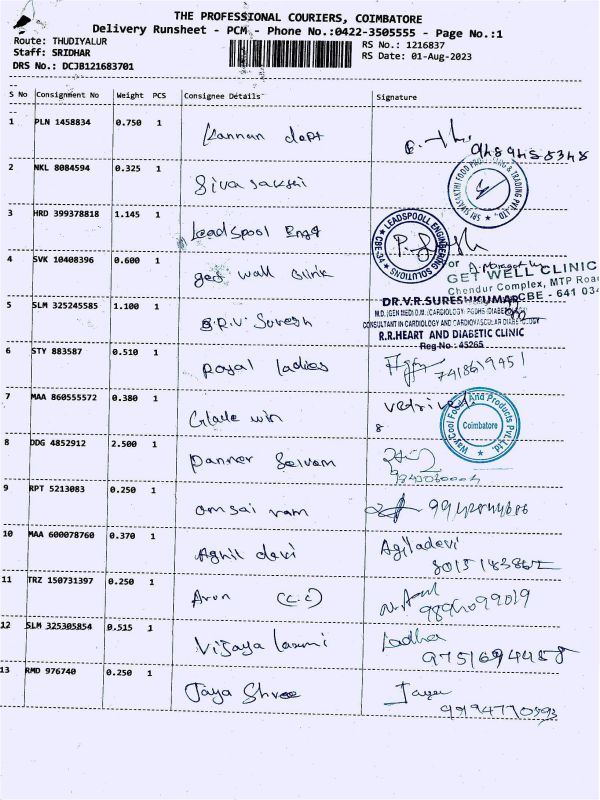 THE PROFESSIONAL COURIERS, COIMBATORE
Delivery Runsheet - PCM - Phone No.:0422-3505555 - Page No.:1
Route: THUDIYALUR
Staff: SRIDHAR
DRS No.: DCJB121683701
RS No.: 1216837
RS Date: 01-Aug-2023
S No Consignment No Weight PCS Consignee Details Signature
1 PLN 1458834 0.750 1 Kannan dept
2 NKL 8084594 0.325 1 Siva sakthi
3 HRD 399378818 1.145 1 Leadspool Engg
LEADSPOOLL ENGINEERING SOLUTIONS
CBE-34
4 SVK 10408396 0.600 1 get wall clinik
For
GET WELL CLINIC
Chendur Complex, MTP Road
CBE - 641 034
5 SLM 325245585 1.100 1 S.R.V. Suresh
DR.V.R.SURESHKUMAR
CONSULTANT IN CARDIOLOGY AND CARDIOVASCULAR DIABETOLOGY
R.R.HEART AND DIABETIC CLINIC
Reg No: 45265
6 STY 883587 0.510 1 Royal ladies 7418619451
7 MAA 860555572 0.380 1 win
8
Way Cool Foods And Products Pvt. Ltd.
Coimbatore
8 DDG 4852912 2.500 1 Panner Selvam
9 RPT 5213083 0.250 1 om sai ram
10 MAA 600078760 0.370 1 Aghil devi Agiladevi
11 TRZ 150731397 0.250 1 Arun (C.C)
12 SLM 325305854 0.515 1 Vijaya laxmi Radha
9751694458
13 RMD 976740 0.250 1 Jaya Shree Jaya